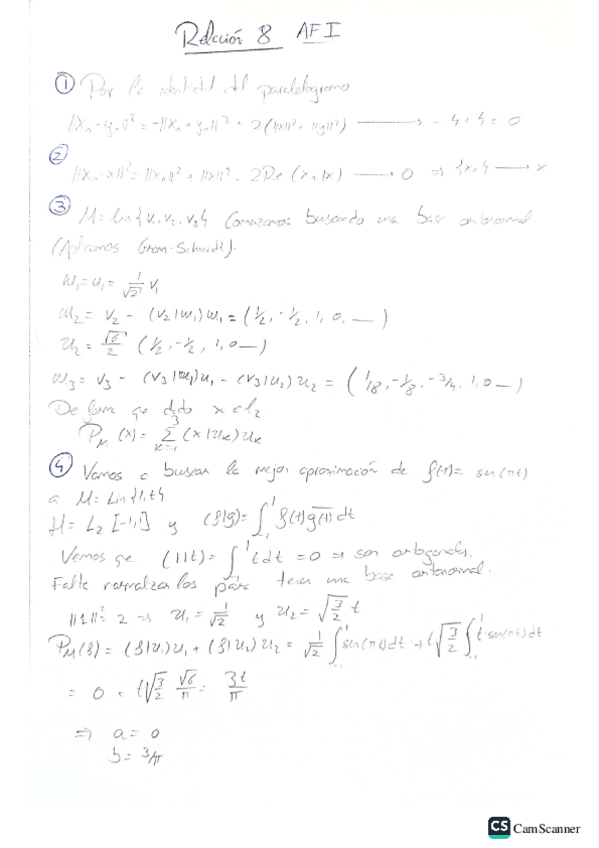 Relación 8 AF I
① Por la identidad del paralelogramo
||xₙ-yₙ||² = -||xₙ+yₙ||² + 2(||x||²+||y||²) ⟶ -4+4=0
②
||xₙ-x||² = ||xₙ||² + ||x||² - 2Re(xₙ|x) ⟶ 0 ⇒ {xₙ} ⟶ x
③ M = Lin{v₁,v₂,v₃} Comenzamos buscando una base ortonormal
(Aplicamos Gram-Schmidt).
w₁=u₁= 1/√2 v₁
w₂ = v₂ - (v₂|u₁)u₁ = (1/2, -1/2, 1, 0, —)
u₂ = √6/2 (1/2, -1/2, 1, 0 —)
w₃ = v₃ - (v₃|u₁)u₁ - (v₃|u₂)u₂ = (1/8, -1/8, -3/4, 1, 0 —)
De forma que dado x∈l₂
P_M(x) = Σ_{k=1}^{3} (x|u_k)u_k
④ Vamos a buscar la mejor aproximación de f(t)= sen(πt)
a M= Lin{1,t}
H = L₂[-1,1] y (f|g)= ∫₋₁¹ f(t)g(t)dt
Vemos que (1|t)= ∫₋₁¹ t dt = 0 ⇒ son ortogonales.
Falta normalizarlos para tener una base ortonormal.
||1||² = 2 ⇒ u₁ = 1/√2 y u₂ = √(3/2) t
P_M(f) = (f|u₁)u₁ + (f|u₂)u₂ = 1/√2 ∫₋₁¹ sen(πt)dt + t√(3/2) ∫₋₁¹ t·sen(πt)dt
= 0 + t√(3/2) √6/π = 3t/π
⇒ a = 0
b = 3/π
CS CamScanner